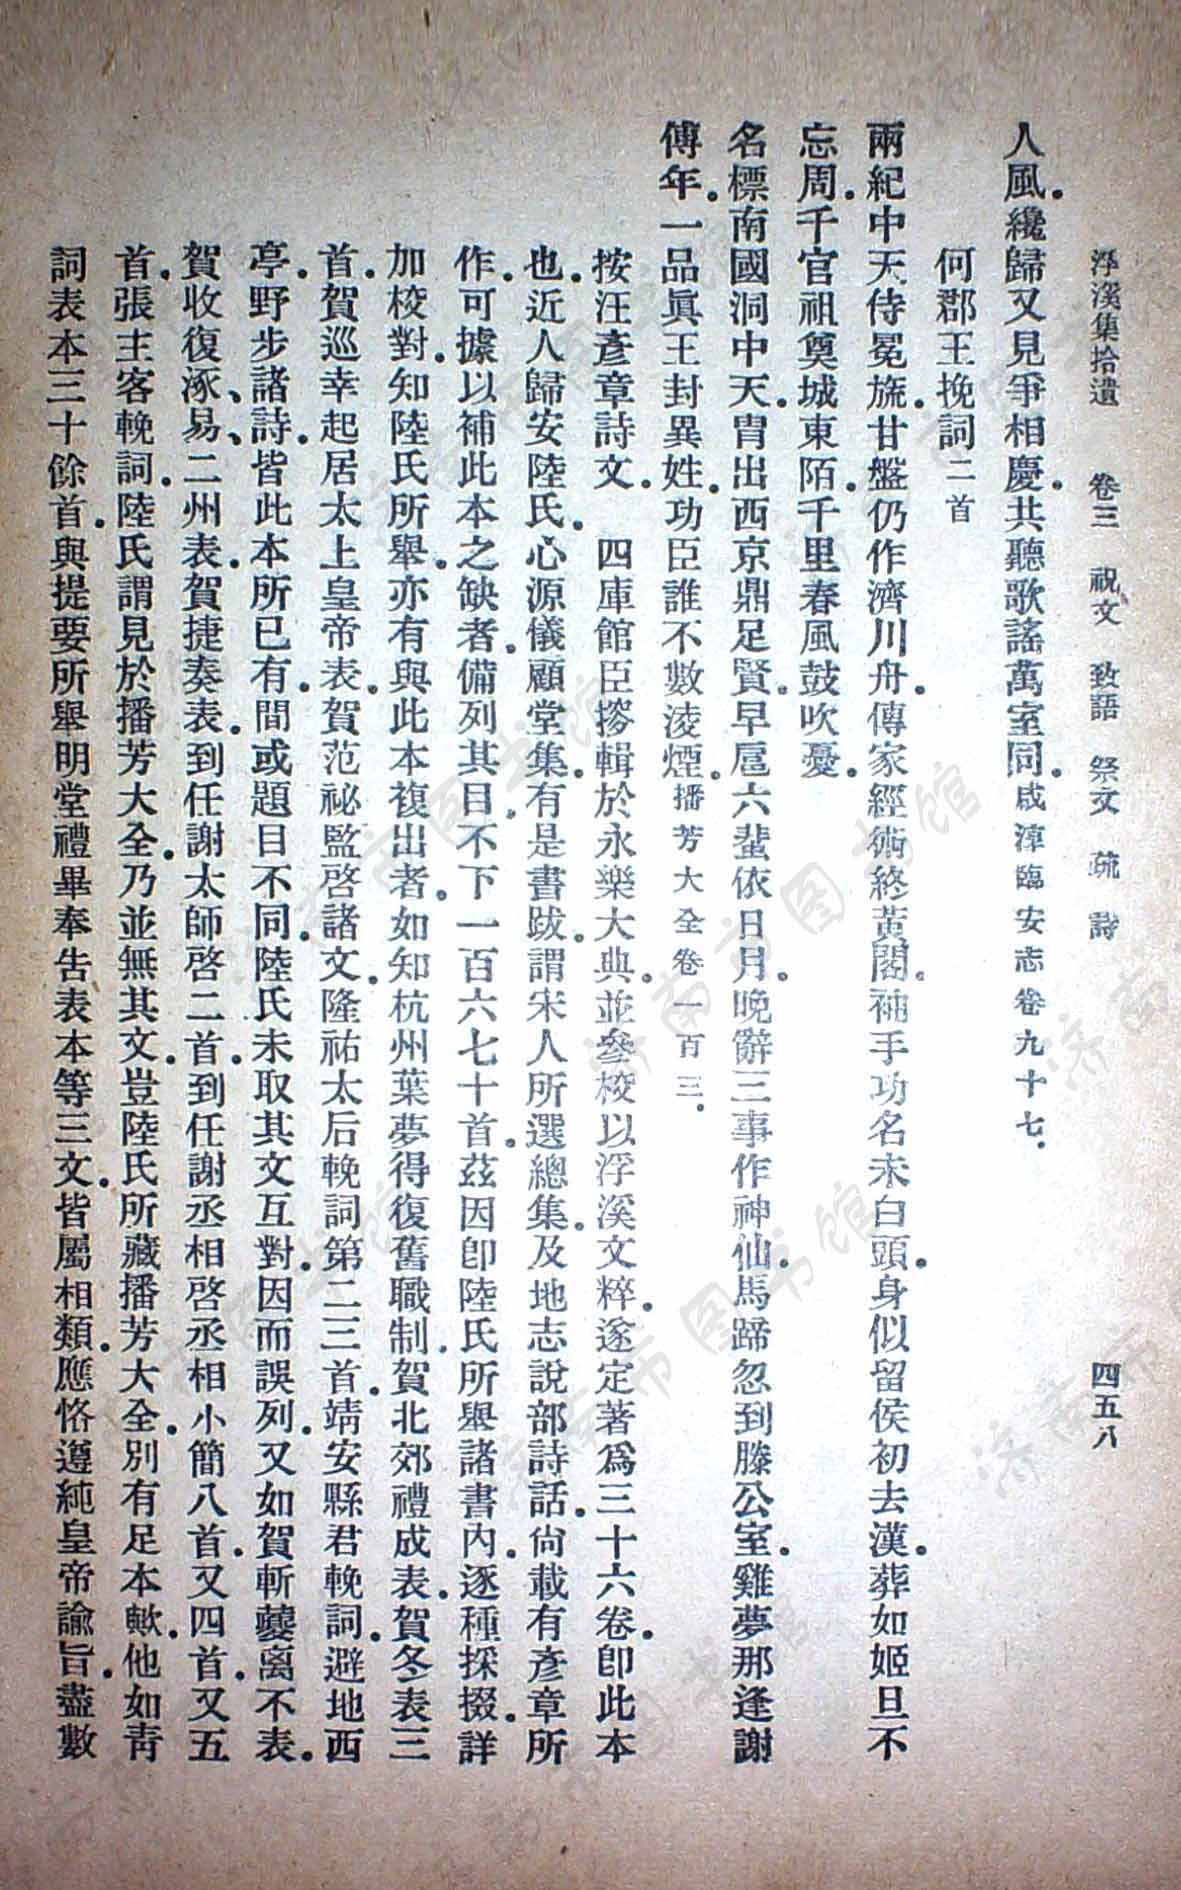 浮溪集拾遺　卷三　祝文　致語　祭文　疏　詩　四五八
人風。纔歸又見爭相慶。共聽歌謠萬室同。咸淳臨安志卷九十七。
何郡王挽詞二首
兩紀中天侍冕旒。甘盤仍作濟川舟。傳家經術終黃閣。袖手功名未白頭。身似留侯初去漢。葬如姬旦不
忘周。千官祖奠城東陌。千里春風鼓吹憂。
名標南國洞中天。胄出西京鼎足賢。早扈六蜚依日月。晚辭三事作神仙。馬蹄忽到滕公室。雞夢那逢謝
傅年。一品眞王封異姓。功臣誰不數淩煙。播芳大全卷一百三。
按汪彥章詩文。　四庫館臣摎輯於永樂大典。並參校以浮溪文粹。遂定著爲三十六卷。卽此本
也。近人歸安陸氏。心源儀顧堂集。有是書跋。謂宋人所選總集。及地志說部詩話。尙載有彥章所
作。可據以補此本之缺者。備列其目。不下一百六七十首。茲因卽陸氏所舉諸書內。逐種採掇。詳
加校對。知陸氏所舉。亦有與此本複出者。如知杭州葉夢得復舊職制。賀北郊禮成表。賀冬表三
首。賀巡幸起居太上皇帝表。賀范祕監啓諸文。隆祐太后輓詞第二三首。靖安縣君輓詞。避地西
亭。野步諸詩。皆此本所已有。間或題目不同。陸氏未取其文互對。因而誤列。又如賀斬虁离不表。
賀收復涿、易、二州表。賀捷奏表。到任謝太師啓二首。到任謝丞相啓丞相小簡八首。又四首。又五
首。張主客輓詞。陸氏謂見於播芳大全。乃並無其文。豈陸氏所藏播芳大全。別有足本歟。他如靑
詞表本三十餘首。與提要所舉明堂禮畢奉告表本等三文。皆屬相類。應恪遵純皇帝諭旨。盡數